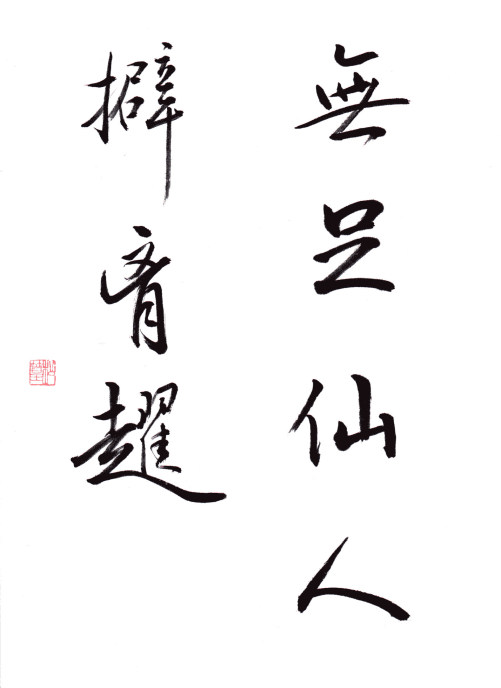 無足仙人
擗胷趯